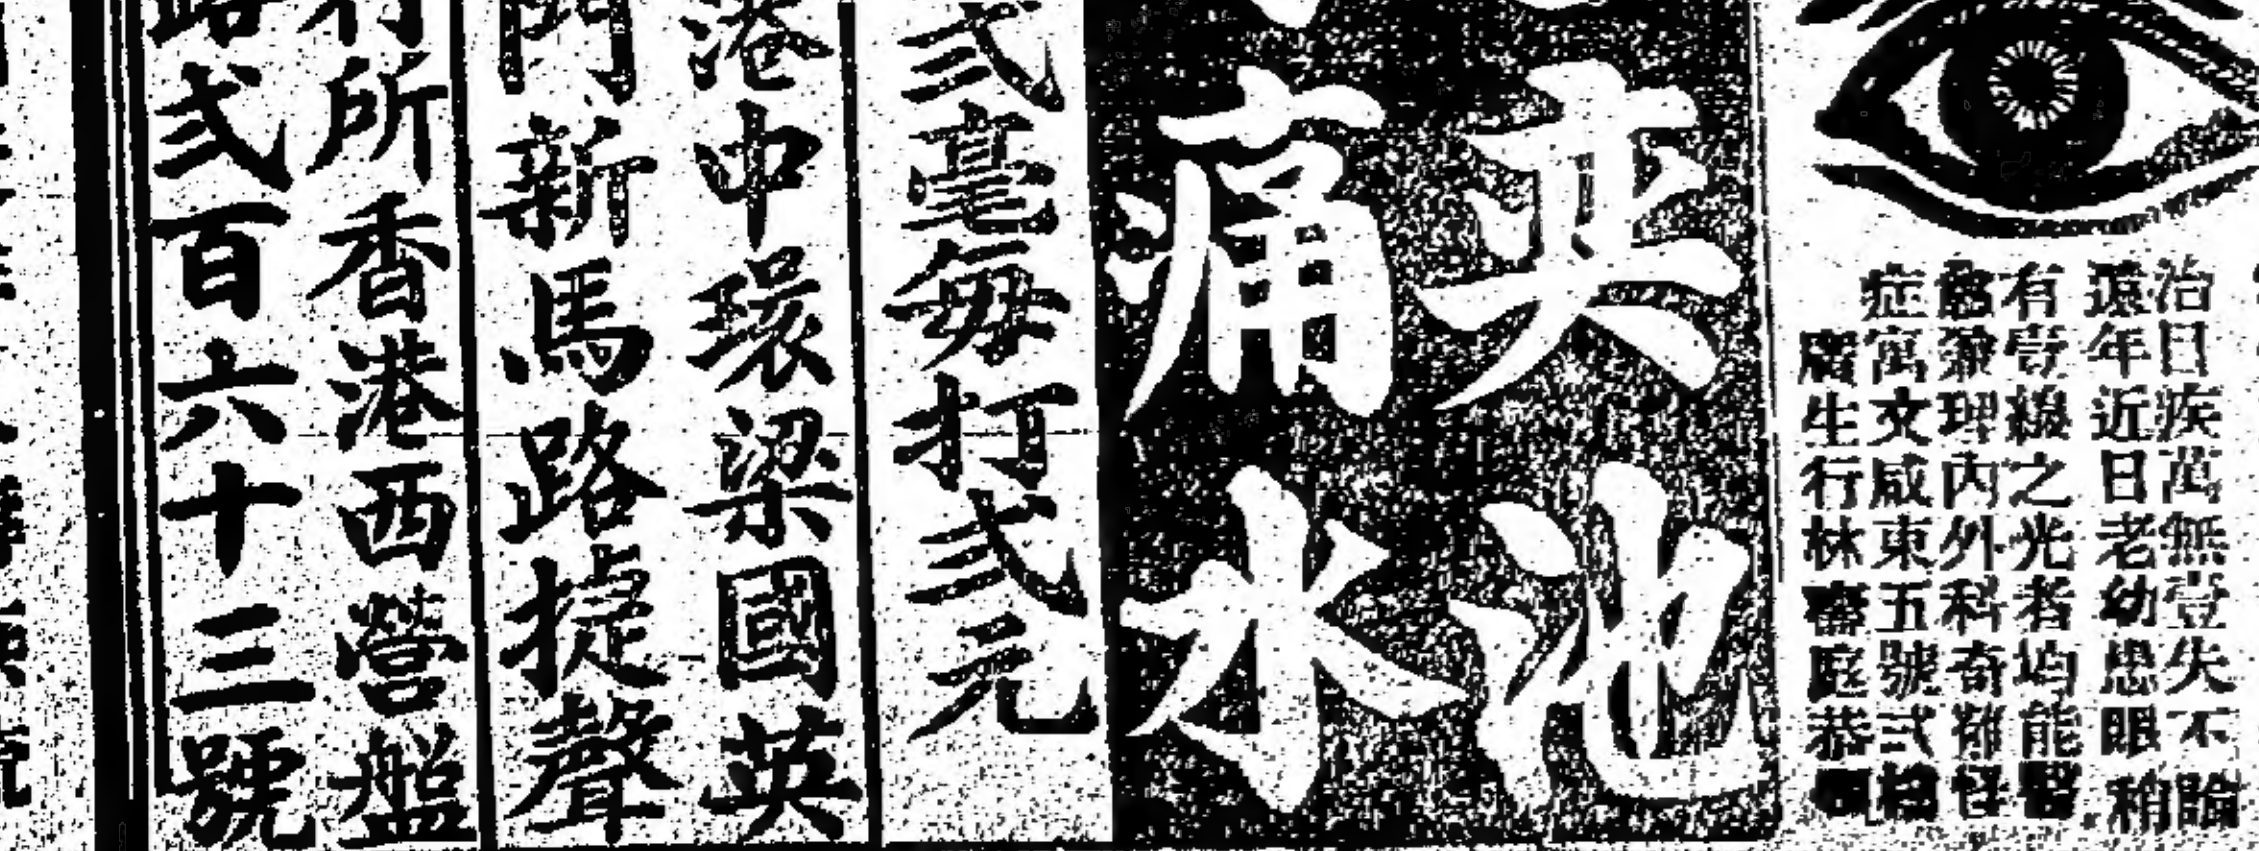 治目疾萬無壹失不論
遠年近日老幼患眼稍
有壹綫之光者均能醫
愈兼理內外科奇難怪
症寓文咸東五號弍樓
廣生行林壽庭恭
英池
痛水
弍毫每打弍元
港中環梁國英
門新馬路捷聲
行所香港西營盤
路弍百六十三號